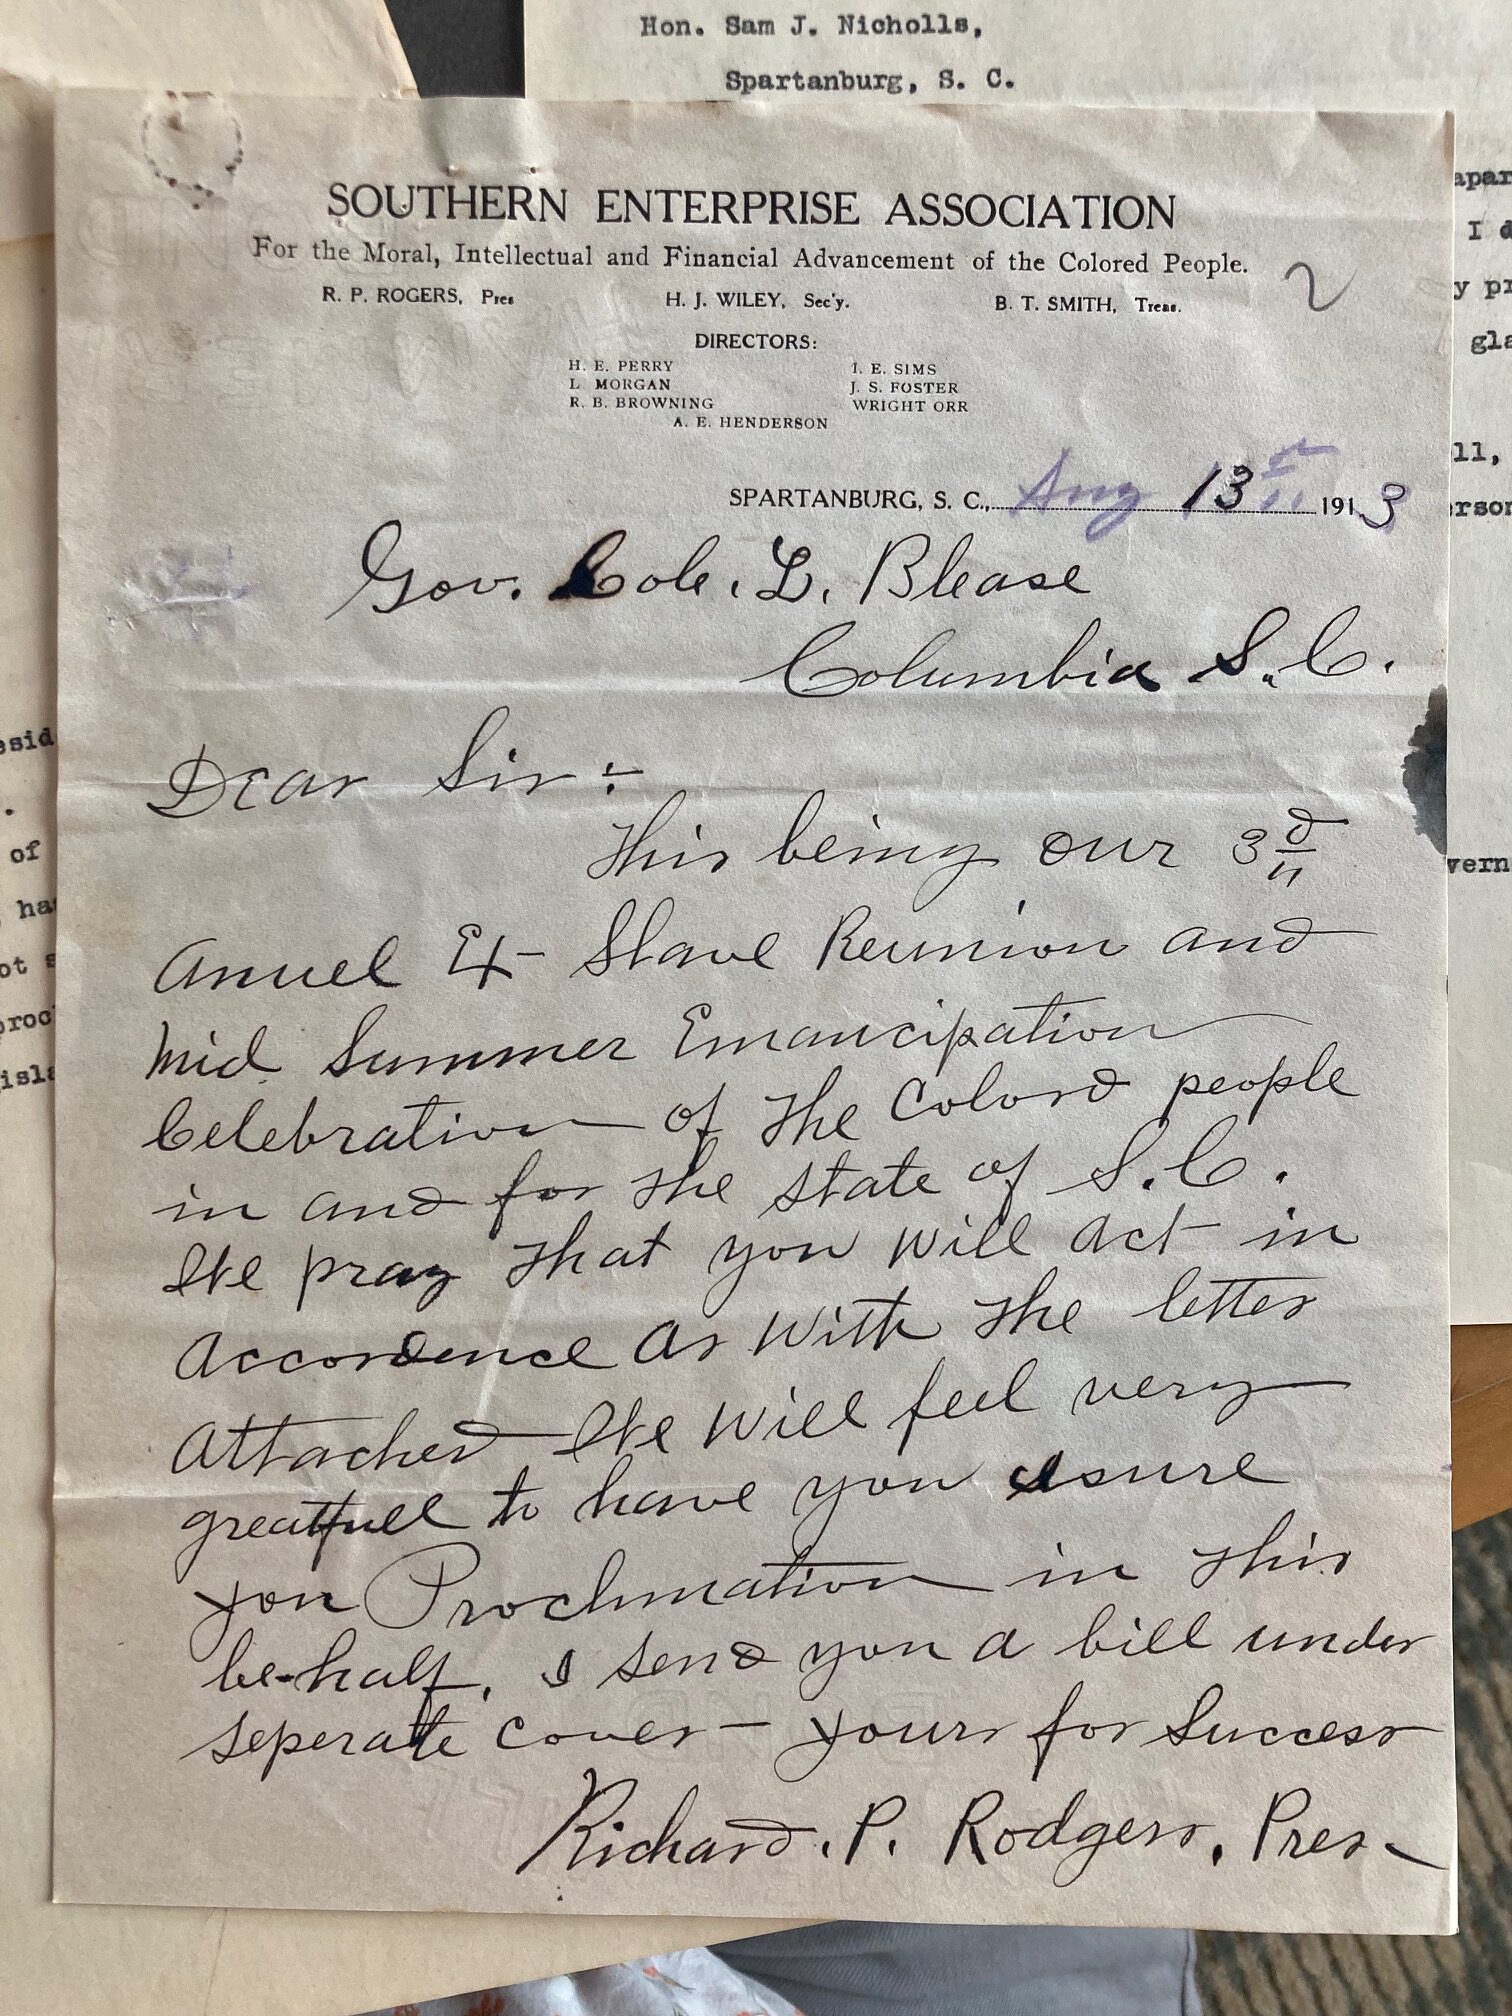 Hon. Sam J. Nicholls,
Spartanburg, S. C.
SOUTHERN ENTERPRISE ASSOCIATION
For the Moral, Intellectual and Financial Advancement of the Colored People.
R. P. ROGERS, Pres H. J. WILEY, Sec'y. B. T. SMITH, Treas.
2
DIRECTORS:
H. E. PERRY I. E. SIMS
L MORGAN J. S. FOSTER
R. B. BROWNING WRIGHT ORR
A. E. HENDERSON
SPARTANBURG, S. C., Aug 13th 1913
Gov. Cole. L. Blease
Columbia S. C.
Dear Sir:-
This being our 3d
Anuel Ex-Slave Reunion and
Mid Summer Emancipation
Celebration of the Colord people
in and for the State of S. C.
We pray that you will act in
Accordence as with the letter
Attached We will feel very
greatfull to have you asure
you Proclmation in this
be-half, I send you a bill under
seperate cover- yours for Success
Richard. P. Rodgers, Pres-
apar
I d
y pr
gla
ll,
erson
vern
esid
.
of
has
ot s
proc
isla